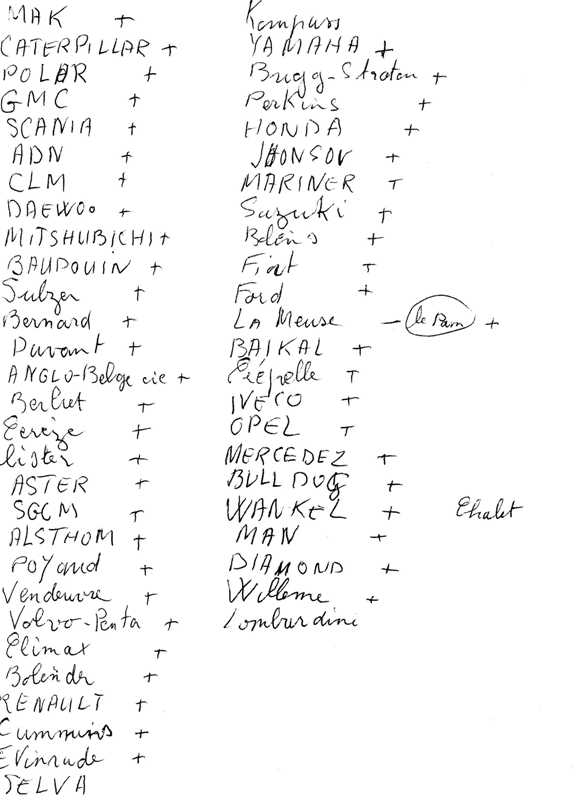 MAK +
CATERPILLAR +
POLAR +
GMC +
SCANIA +
ADN +
CLM +
DAEWOO +
MITSHUBICHI +
BAUDOUIN +
Sulzer +
Bernard +
Duvant +
ANGLO-Belge cie +
Berliet +
Cerèze +
lister +
ASTER +
SGCM +
ALSTHOM +
POYaud +
Vendeuvre +
Volvo-Penta +
Climax +
Bolinder +
RENAULT +
Cummins +
EVinrude +
SELVA
Kompass
YAMAHA +
Brigg-Straton +
Perkins +
HONDA +
JHONSON +
MARINER +
Suzuki +
+
Fiat +
Ford +
LA Meuse - le Pam +
BAIKAL +
Crépelle +
IVECO +
OPEL +
MERCEDEZ +
BULLDOG +
WANKEL +
Chalet
MAN +
DIAMOND +
Willeme +
lombardini